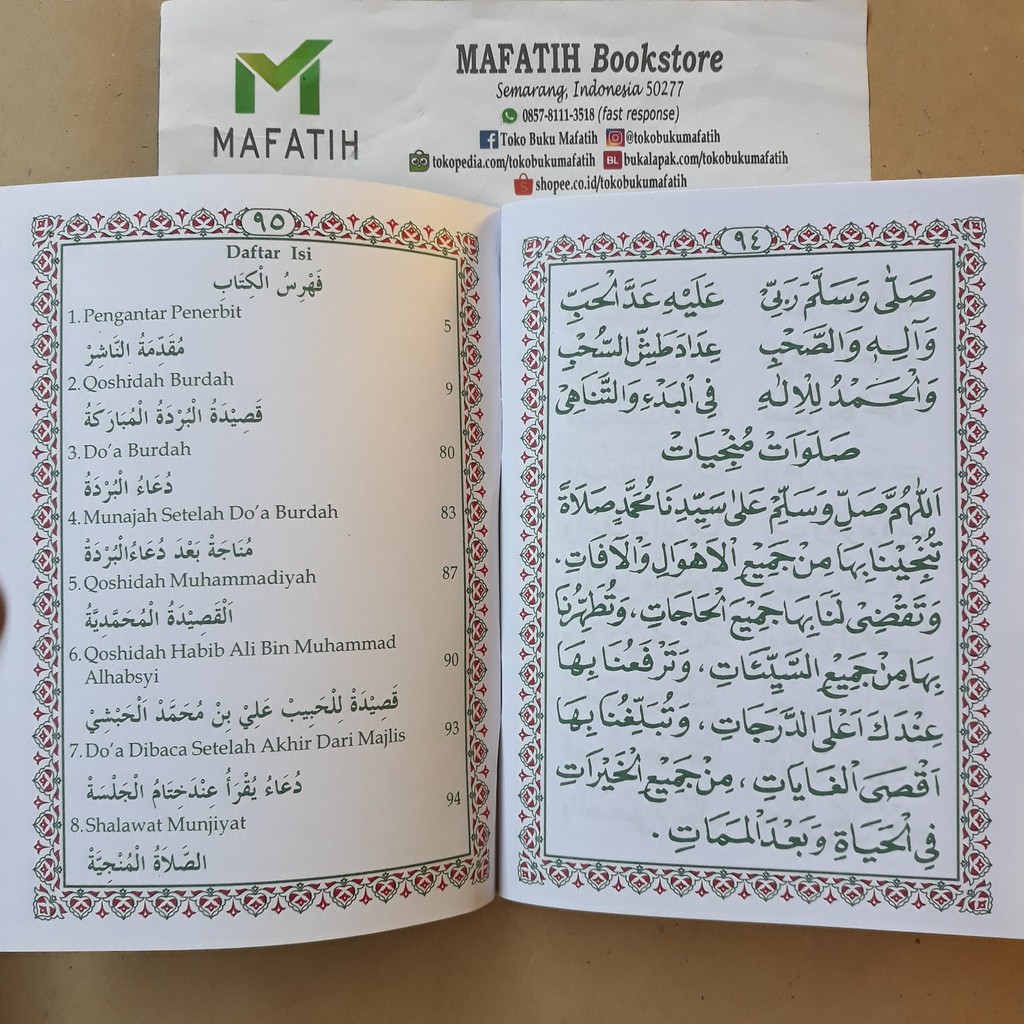 MAFATIH
MAFATIH Bookstore
Semarang, Indonesia 50277
0857-8111-3518 (fast response)
Toko Buku Mafatih @tokobukumafatih
tokopedia.com/tokobukumafatih BL bukalapak.com/tokobukumafatih
shopee.co.id/tokobukumafatih
٩٥
Daftar Isi
فَهْرِسُ الْكِتَابِ
1. Pengantar Penerbit 5
مُقَدِّمَةُ النَّاشِرْ
2. Qoshidah Burdah 9
قَصِيْدَةُ الْبُرْدَةُ الْمُبَارَكَةُ
3. Do'a Burdah 80
دُعَاءُ الْبُرْدَةُ
4. Munajah Setelah Do'a Burdah 83
مُنَاجَةْ بَعْدَ دُعَاءُالْبُرْدَةْ
5. Qoshidah Muhammadiyah 87
اَلْقَصِيْدَةُ الْمُحَمَّدِيَّةُ
6. Qoshidah Habib Ali Bin Muhammad
Alhabsyi 90
قَصِيْدَةْ لِلْحَبِيبْ عَلِيْ بِنْ مُحَمَّدْ اَلْحَبْشِيْ
7. Do'a Dibaca Setelah Akhir Dari Majlis 93
دُعَاءُ يُقْرَأُ عِنْدَخِتَامُ الْجَلْسَةْ
8. Shalawat Munjiyat 94
الصَّلَاةُ الْمُنْجِيَّةْ
٩٤
صَلَّى وَسَلَّمَ رَبِّيْ عَلَيْهِ عَدَّ الْحَبِّ
وَآلِهِ وَالصَّحْبِ عِدَادَ طَشِّ السُّحْبِ
وَالْحَمْدُ لِلْاِلٰهِ فِي الْبَدْءِ وَالتَّنَاهِيْ
صَلَوَاتْ مُنْجِيَاتْ
اَللّٰهُمَّ صَلِّ وَسَلِّمْ عَلَى سَيِّدِنَا مُحَمَّدٍ صَلَاةً
تُنْجِيْنَا بِهَا مِنْ جَمِيْعِ الْاَهْوَالِ وَالْآفَاتِ.
وَتَقْضِىْ لَنَا بِهَا جَمِيْعَ الْحَاجَاتِ، وَتُطَهِّرُنَا
بِهَا مِنْ جَمِيْعِ السَّيِّئَاتِ، وَتَرْفَعُنَا بِهَا
عِنْدَكَ اَعْلَى الدَّرَجَاتِ، وَتُبَلِّغُنَا بِهَا
اَقْصَى الْغَايَاتِ، مِنْ جَمِيْعِ الْخَيْرَاتِ
فِي الْحَيَاةِ وَبَعْدَ الْمَمَاتِ.